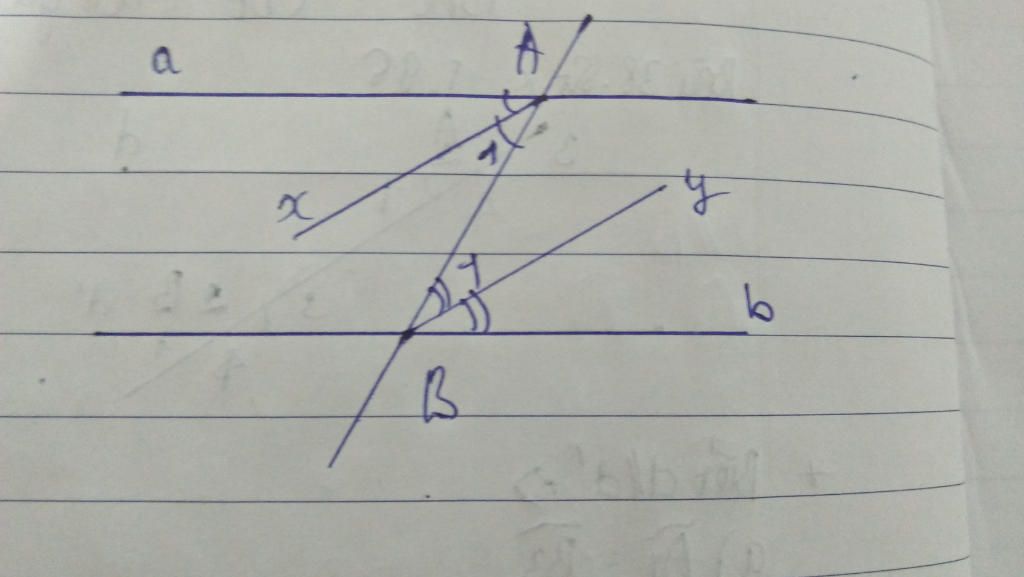 a
A
1
x
y
1
b
B